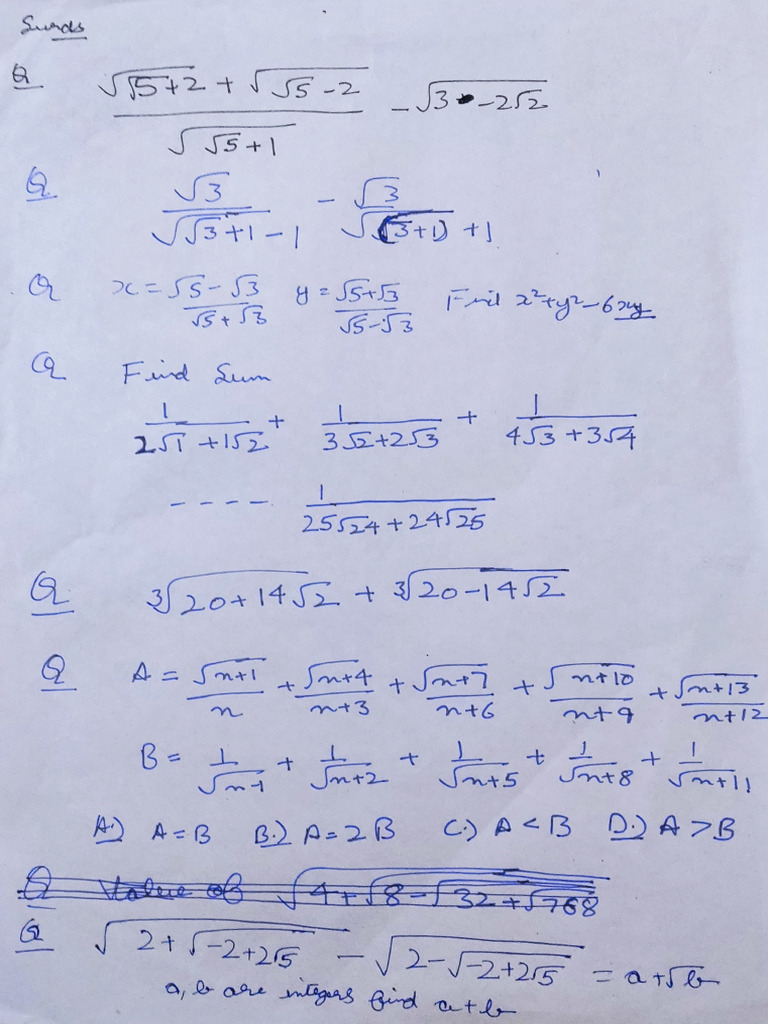 Surds
Q (√(√5+2) + √(√5-2))/√(√5+1) - √(3-2√2)
Q √3/(√(√3+1) -1) - √3/(√(√3+1) +1)
Q x = (√5-√3)/(√5+√3) y = (√5+√3)/(√5-√3) Find x²+y²-6xy
Q Find Sum
1/(2√1+1√2) + 1/(3√2+2√3) + 1/(4√3+3√4)
---- 1/(25√24+24√25)
Q ∛(20+14√2) + ∛(20-14√2)
Q A = √(n+1)/n + √(n+4)/(n+3) + √(n+7)/(n+6) + √(n+10)/(n+9) + √(n+13)/(n+12)
B = 1/√(n-1) + 1/√(n+2) + 1/√(n+5) + 1/√(n+8) + 1/√(n+11)
A.) A=B B.) A=2B C.) A<B D.) A>B
Q Value of √(4+√(8-√(32+√768)))
Q √(2+√(-2+2√5)) - √(2-√(-2+2√5)) = a+√b
a, b are integers find a+b